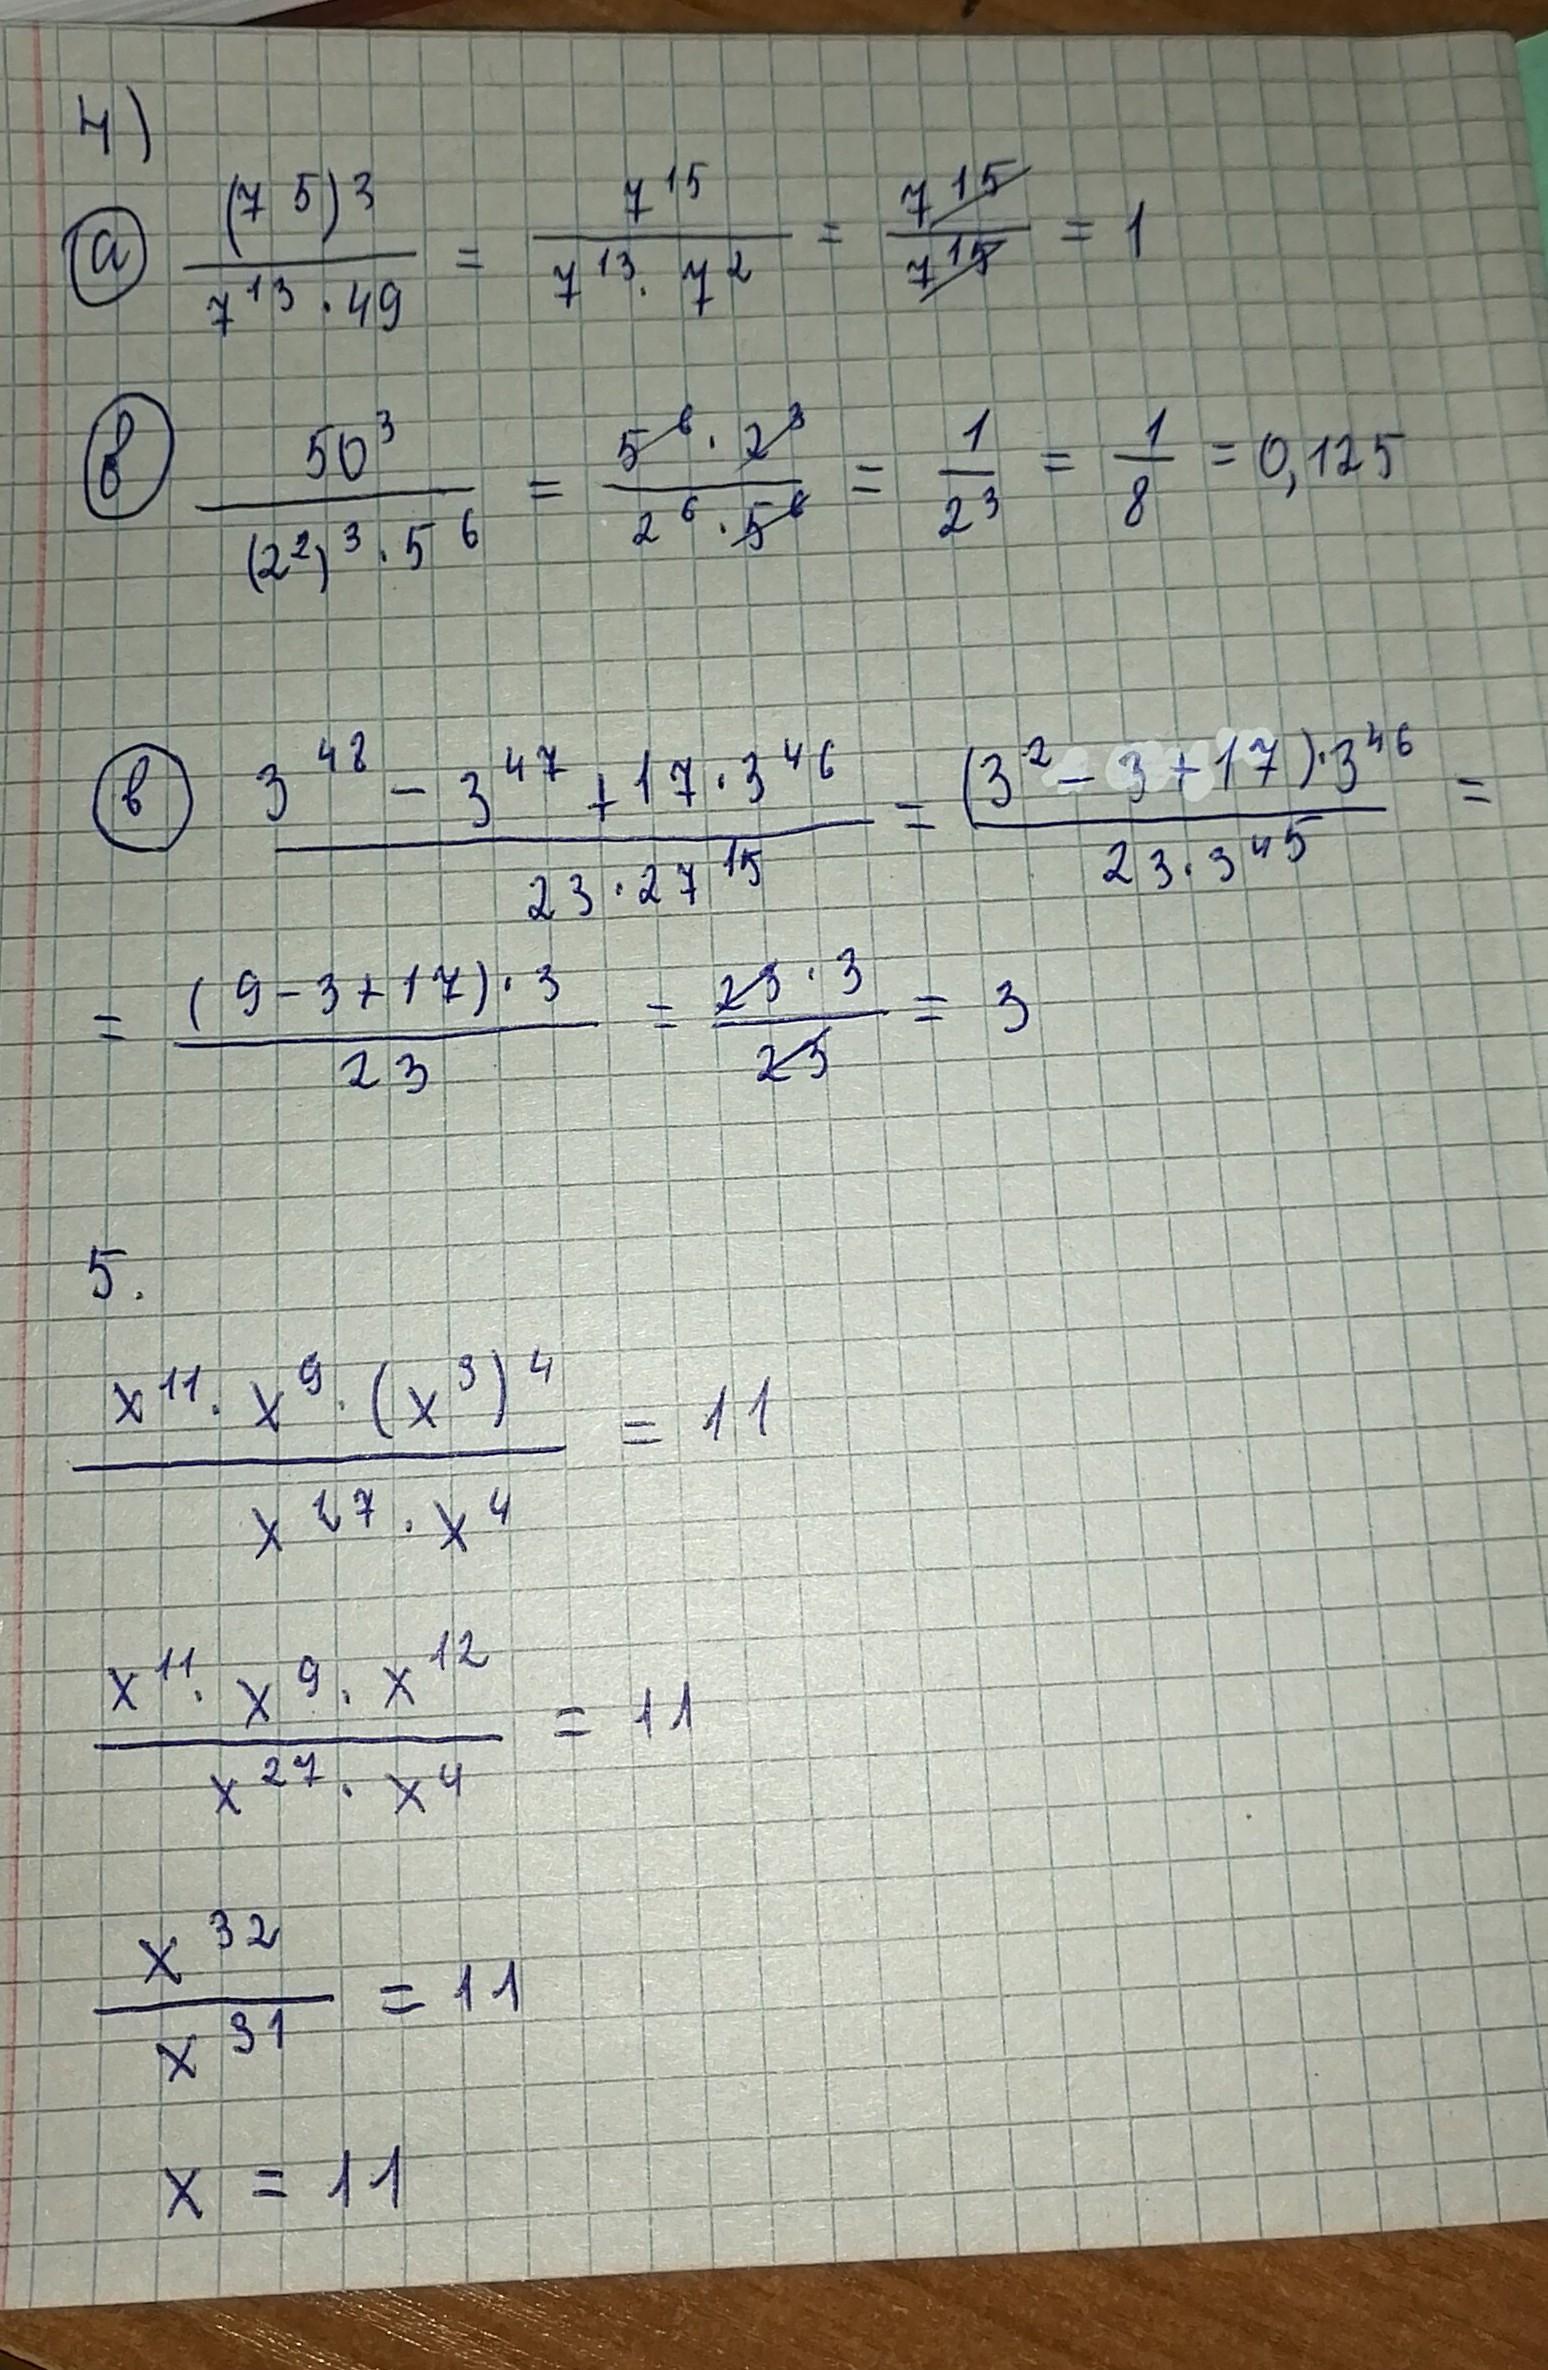 4)
а) (7^5)^3 / (7^13 · 49) = 7^15 / (7^13 · 7^2) = 7^15 / 7^15 = 1
б) 50^3 / ((2^2)^3 · 5^6) = (5^6 · 2^3) / (2^6 · 5^6) = 1 / 2^3 = 1 / 8 = 0,125
в) (3^48 - 3^47 + 17 · 3^46) / (23 · 27^15) = ((3^2 - 3 + 17) · 3^46) / (23 · 3^45) =
= ((9 - 3 + 17) · 3) / 23 = (23 · 3) / 23 = 3
5.
(x^11 · x^9 · (x^3)^4) / (x^27 · x^4) = 11
(x^11 · x^9 · x^12) / (x^27 · x^4) = 11
x^32 / x^31 = 11
x = 11